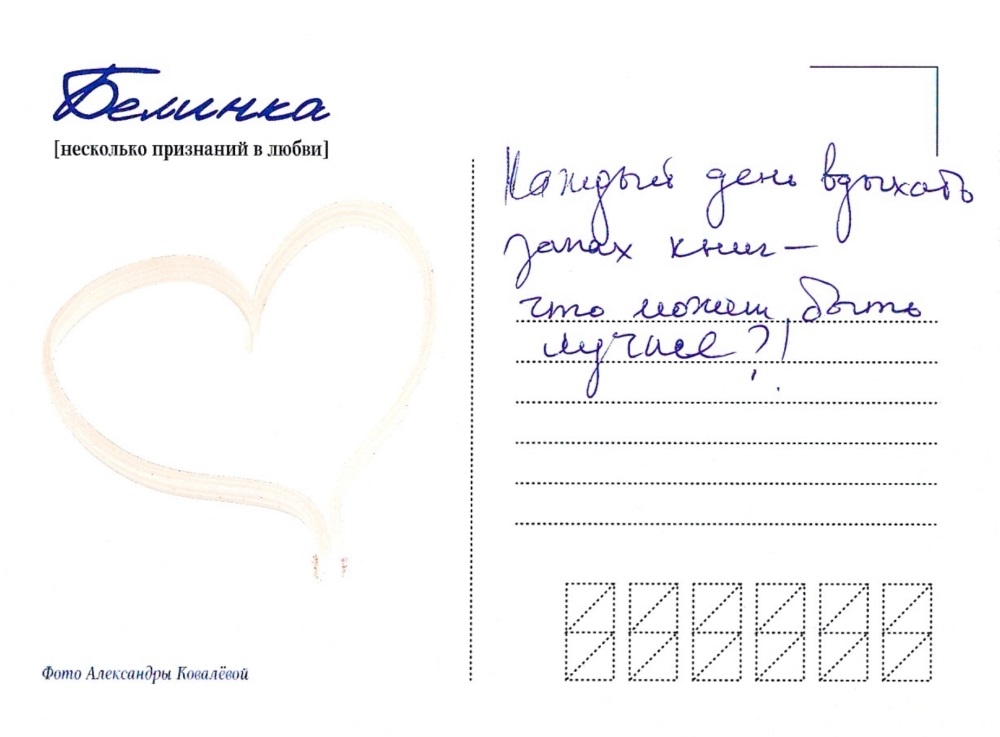 Белинка
[несколько признаний в любви]
Каждый день вдыхать
запах книг —
что может быть
лучше?!
Фото Александры Ковалёвой